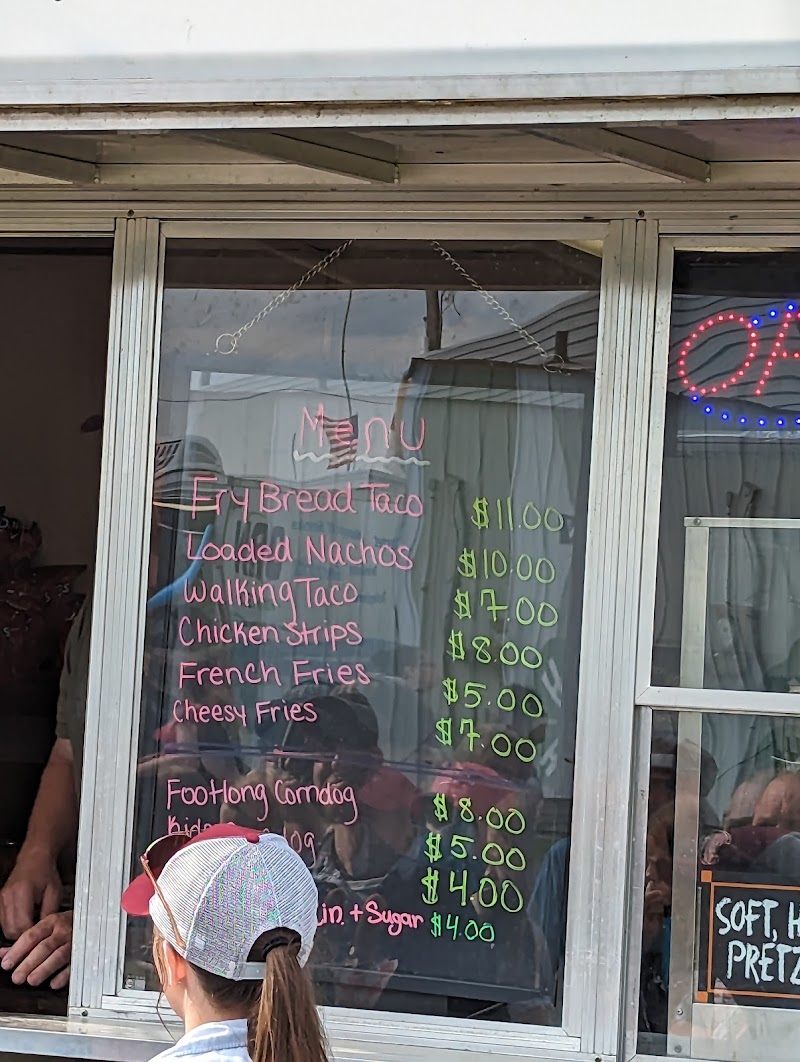 Menu
Fry Bread Taco $11.00
Loaded Nachos $10.00
Walking Taco $7.00
Chicken Strips $8.00
French Fries $5.00
Cheesy Fries $7.00
Footlong Corndog $8.00
$5.00
$4.00
+ Sugar $4.00
SOFT,